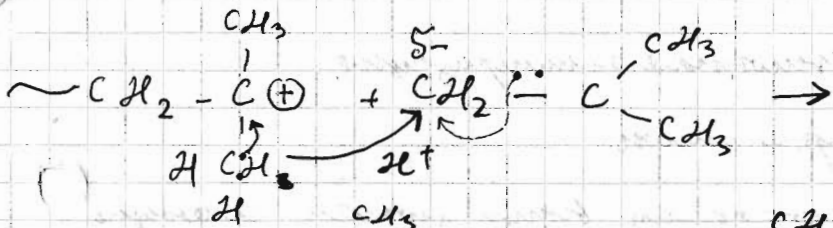 CH₃ δ- CH₃
~ CH₂ - C ⊕ + CH₂ = C →
CH₃
H CH₃ H⁺
H CH₃ CH